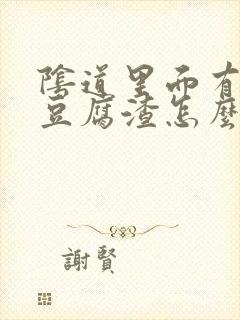 陰道里面有
豆腐渣怎麼
謝賢